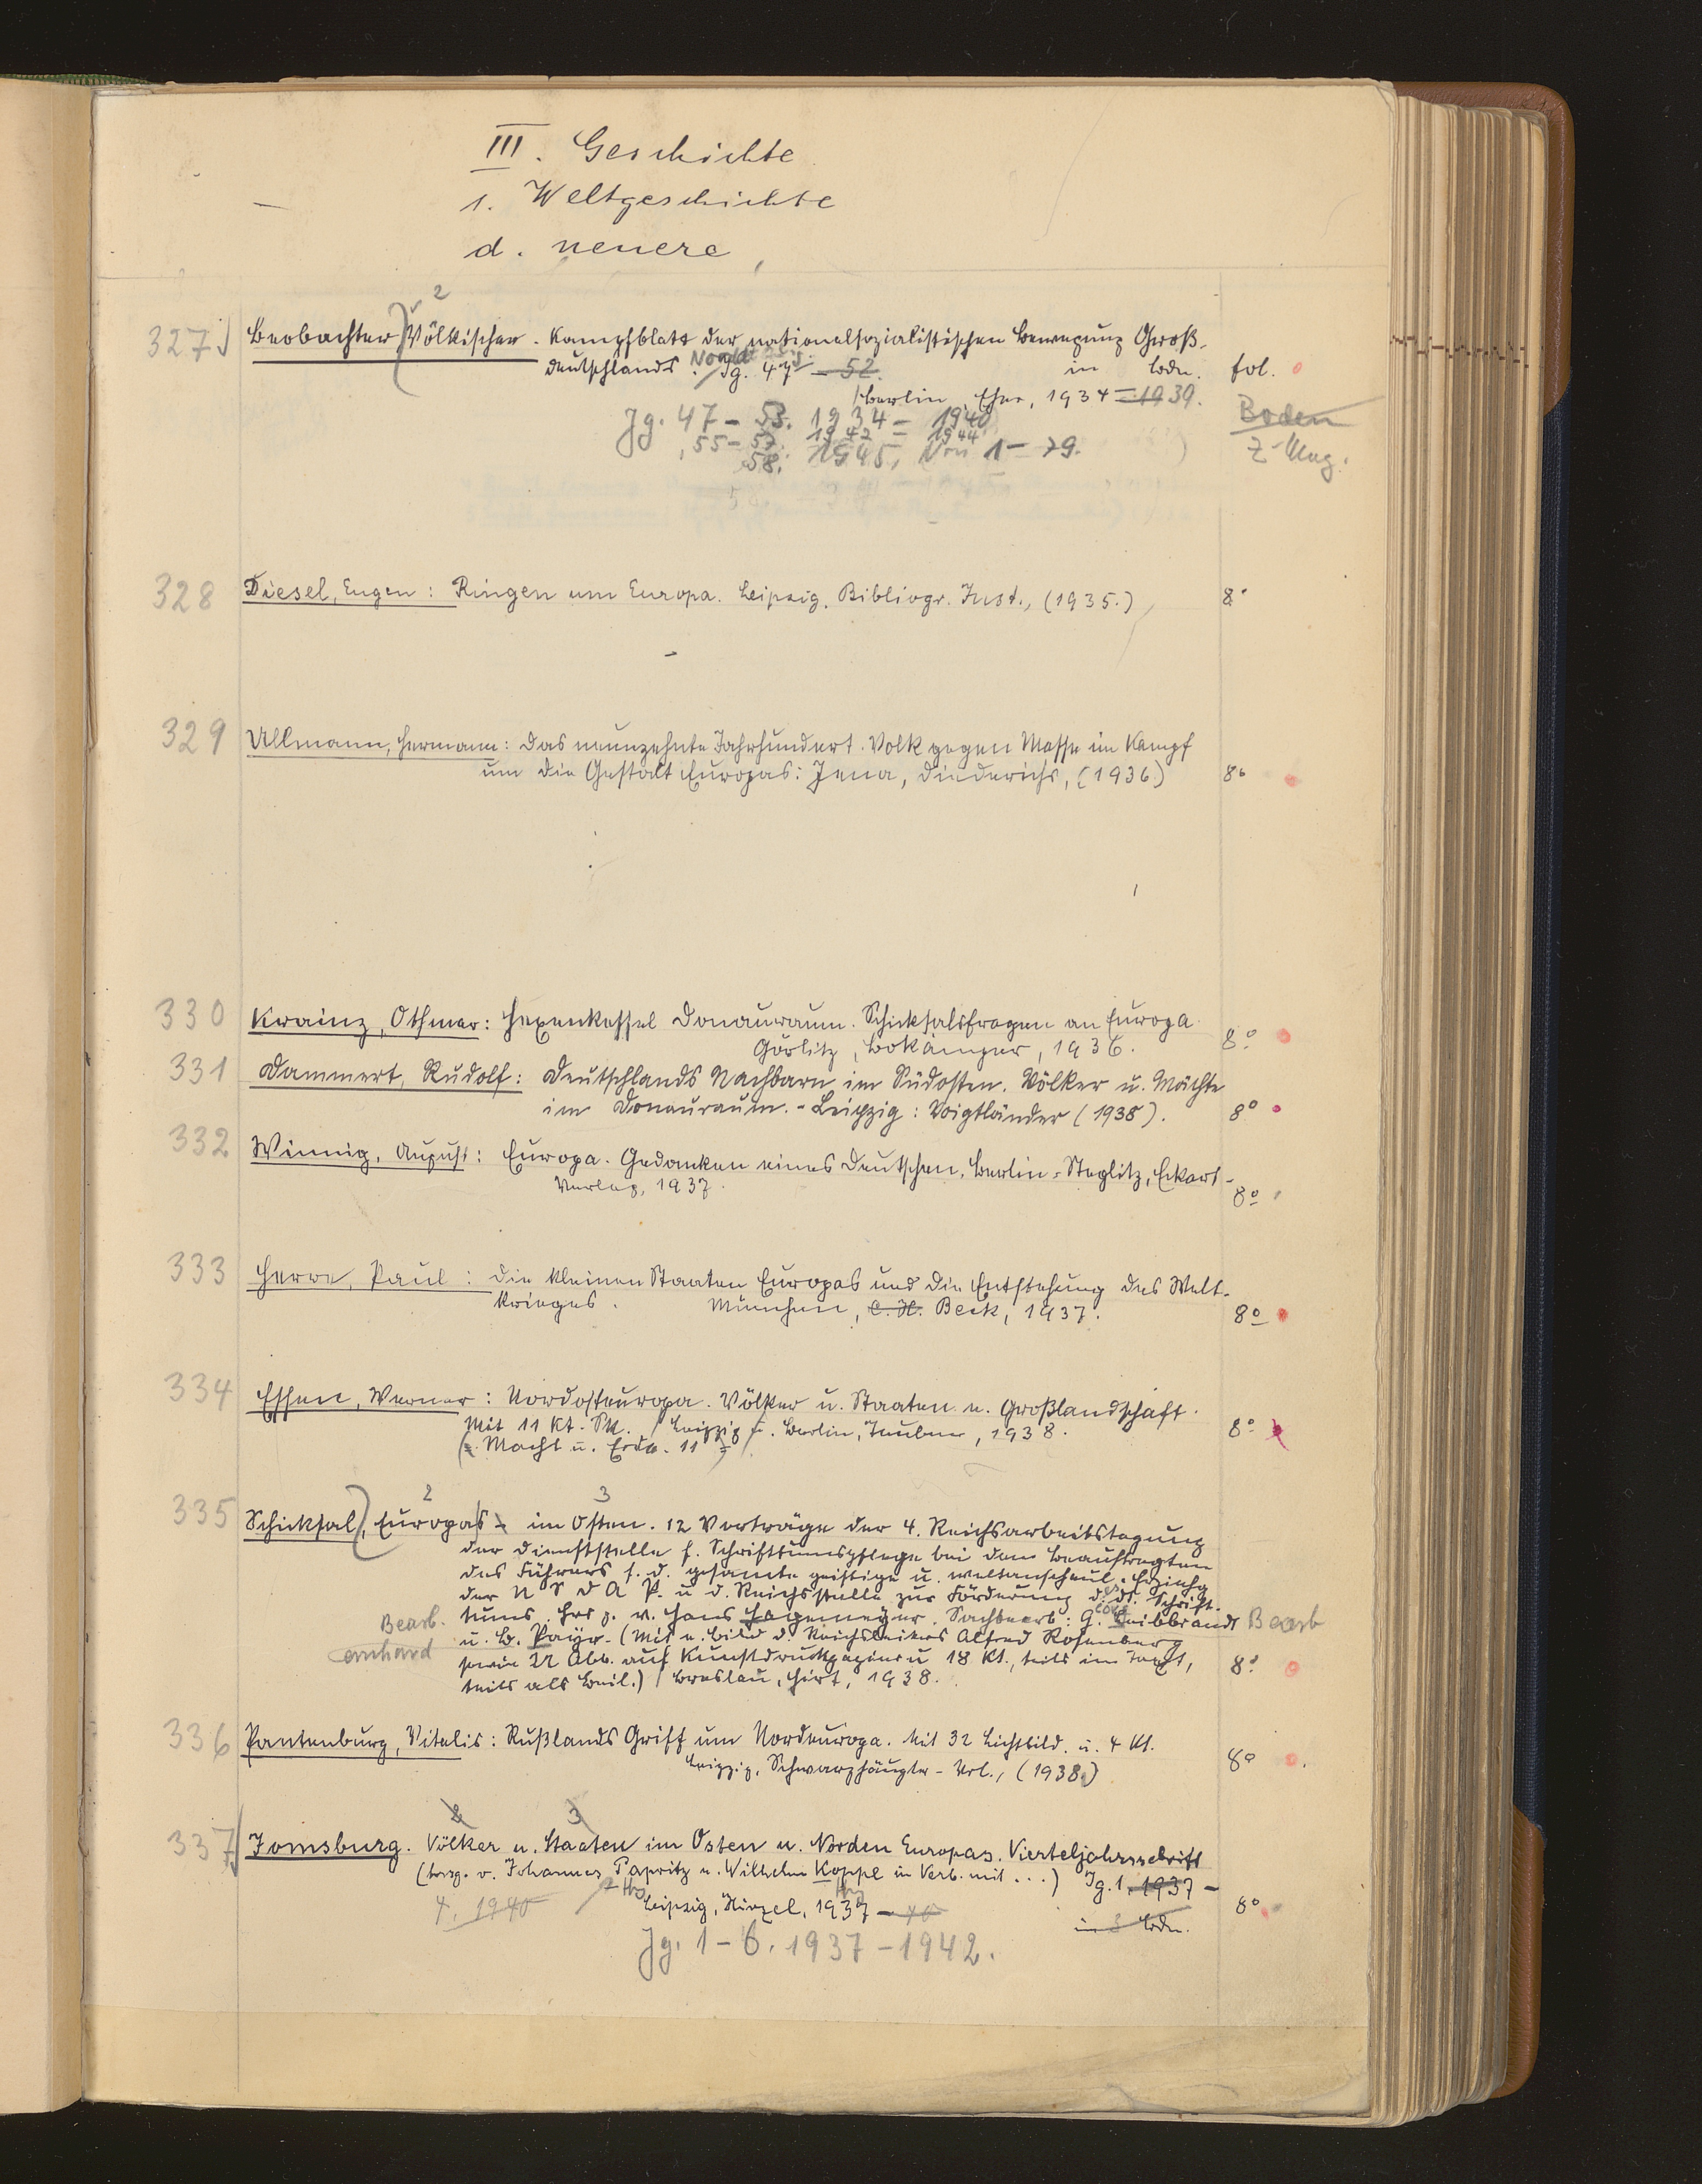 III. Geschichte
1. Weltgeschichte
d. neuere
2
327 Beobachter, Völkischer. Kampfblatt der nationalsozialistischen Bewegung Groß-
deutschlands. Nordd. Ausg. Jg. 47 – 52. in Bdn. fol.
Berlin, Eher, 1934 = 1939.
Jg. 47 – 53. 1934 = 1940 Boden
55 – 57. 1942 = 1944 Z-Mag.
58. 1945, Nr. 1 – 79.
328 Diesel, Eugen: Ringen um Europa. Leipzig, Bibliogr. Inst., (1935.) 8°
329 Ullmann, Hermann: Das neunzehnte Jahrhundert. Volk gegen Masse im Kampf
um die Gestalt Europas: Jena, Diederichs, (1936) 8°
330 Krainz, Othmar: Hexenkessel Donauraum. Schicksalsfragen an Europa
Görlitz, Bokämper, 1936. 8°
331 Dammert, Rudolf: Deutschlands Nachbarn im Südosten. Völker u. Mächte
im Donauraum. - Leipzig: Voigtländer (1938). 8°
332 Winnig, August: Europa. Gedanken eines Deutschen. Berlin-Steglitz, Eckart-
Verlag, 1937. 8°
333 Herre, Paul: Die kleinen Staaten Europas und die Entstehung des Welt-
krieges. München, C. H. Beck, 1937. 8°
334 Essen, Werner: Nordosteuropa. Völker u. Staaten e. Großlandschaft.
Mit 11 Kt.-Sk. / Leipzig u. Berlin, Teubner, 1938. 8°
(= Macht u. Erde. 11)
2 3
335 Schicksal, Europas - im Osten. 12 Vorträge der 4. Reichsarbeitstagung
der Dienststelle f. Schrifttumspflege bei dem Beauftragten
des Führers f. d. gesamte geistige u. weltanschaul. Erziehg
der N S D A P. u. d. Reichsstelle zur Förderung d. dt. Schrift-
tums. Hrsg. v. Hans Hagemeyer. Sachbearb: G. Leibbrandt Bearb
Bearb. u. B. Payr. (Mit e. Bild d. Reichsleiters Alfred Rosenberg
ernhard sowie 22 Abb. auf Kunstdruckpapier u 18 Kt., teils im Text, 8°
teils als Beil.) / Breslau, Hirt, 1938.
336 Pantenburg, Vitalis: Rußlands Griff um Nordeuropa. Mit 32 Lichtbild. u. 4 Kt.
Leipzig, Schwarzhäupter-Verl., (1938.) 8°
2 3
337 Jomsburg. Völker u. Staaten im Osten u. Norden Europas. Vierteljahrsschrift
(hrsg. v. Johannes Papritz u. Wilhelm Koppe in Verb. mit ...) Jg. 1. 1937 –
4. 1940 Leipzig, Hirzel, 1937 – 40 in Bdn. 8°
Jg. 1 – 6. 1937 – 1942.